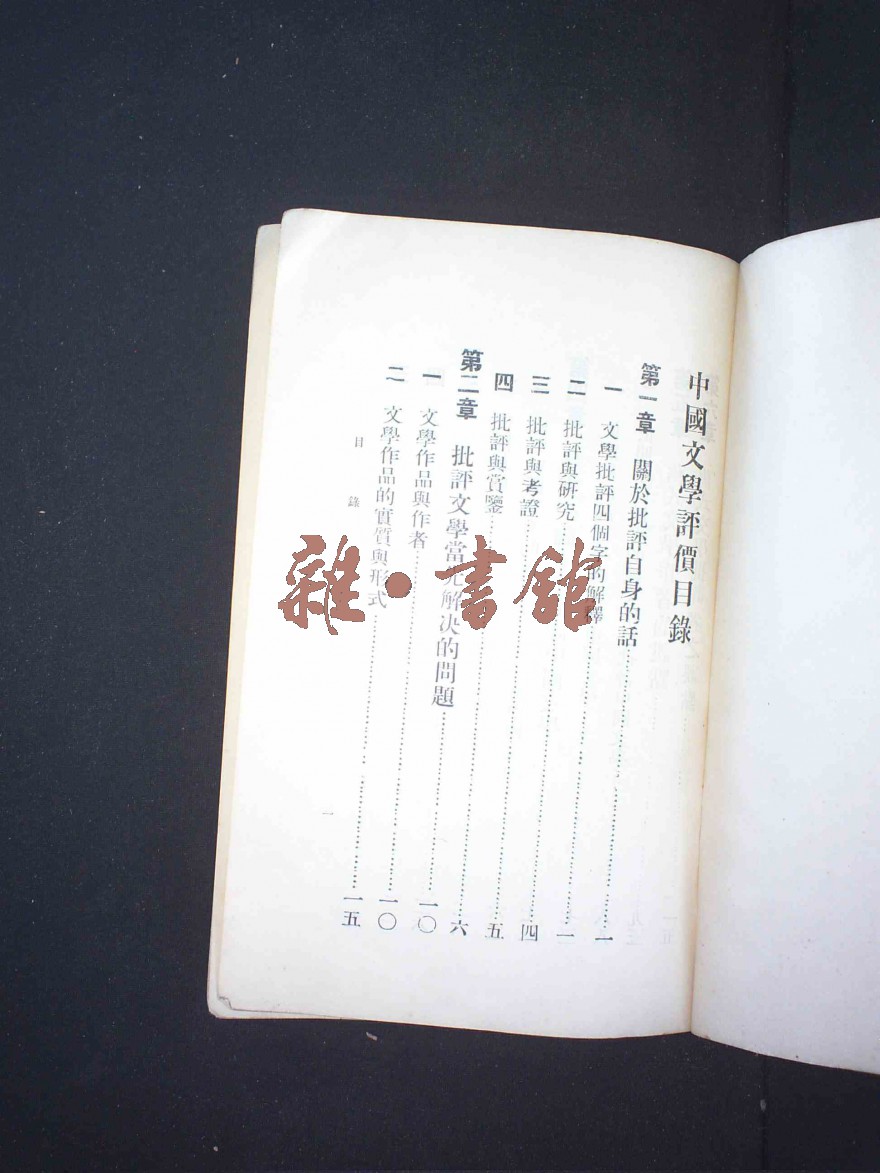 中國文學評價目錄
第一章 關於批評自身的話……一
一 文學批評四個字的解釋……一
二 批評與研究……四
三 批評與考證……五
四 批評與賞鑒……六
第二章 批評文學當先解决的問題……一〇
一 文學作品與作者……一〇
二 文學作品的實質與形式……一五
目錄
一
雜·書館